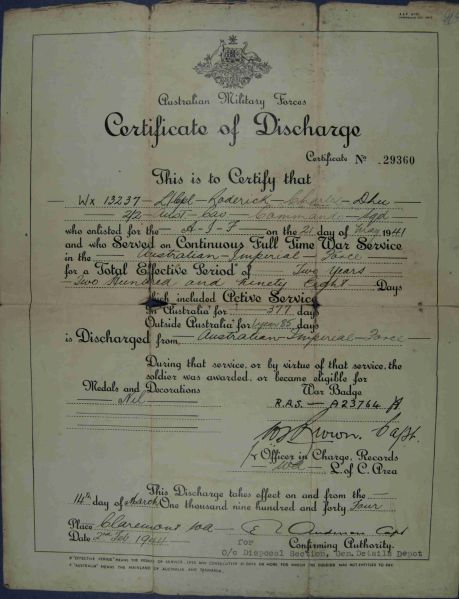 Australian Military Forces
Certificate of Discharge
Certificate No. 29360
This is to Certify that
Wx 13237 - L/Cpl - Roderick - Charles - Dhu
2/2 Aust Cav Commando Sqd
who enlisted for the A - I - F on the 21 day of May 1941
and who Served on Continuous Full Time War Service
in the Australian - Imperial - Force
for a Total Effective Period of Two Years
Two Hundred and ninety Eight Days
which included Active Service
In Australia* for 377 days
Outside Australia* for 1 year 85 days
is Discharged from Australian - Imperial - Force
During that service, or by virtue of that service, the
soldier was awarded, or became eligible for
Medals and Decorations War Badge
Nil R.A.S. - A23764
Brown. Capt.
Officer in Charge, Records
Wa L. of C. Area
This Discharge takes effect on and from the
14th day of March One thousand nine hundred and forty Four
Place Claremont Wa
Date 2nd Feb. 1944
Capt
for Confirming Authority.
O/c Disposal Section, Gen. Details Depot
* "AUSTRALIA" MEANS THE MAINLAND OF AUSTRALIA AND TASMANIA.